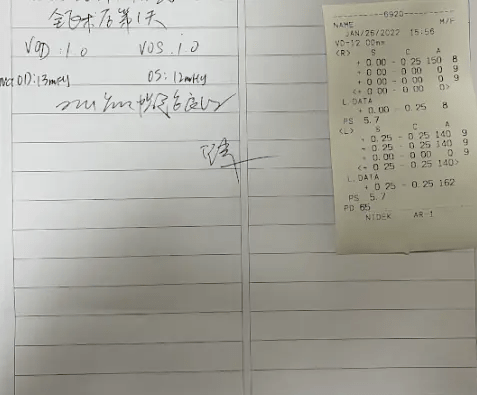 全飞术后第1天
VOD:1.0 VOS:1.0
NCT OD:13mmHg OS:12mmHg
6920
NAME M/F
JAN/26/2022 15:56
VD=12.00mm
<R> S C A
+ 0.00 - 0.25 150 8
+ 0.00 - 0.00 0 9
+ 0.00 - 0.00 0 9
<+ 0.00 - 0.00 0>
L.DATA
+ 0.00 - 0.25 8
PS 5.7
<L> S C A
- 0.25 - 0.25 140 9
- 0.25 - 0.25 140 9
- 0.00 - 0.00 0 9
<- 0.25 - 0.25 140>
L.DATA
+ 0.25 - 0.25 162
PS 5.7
PD 65
NIDEK AR-1